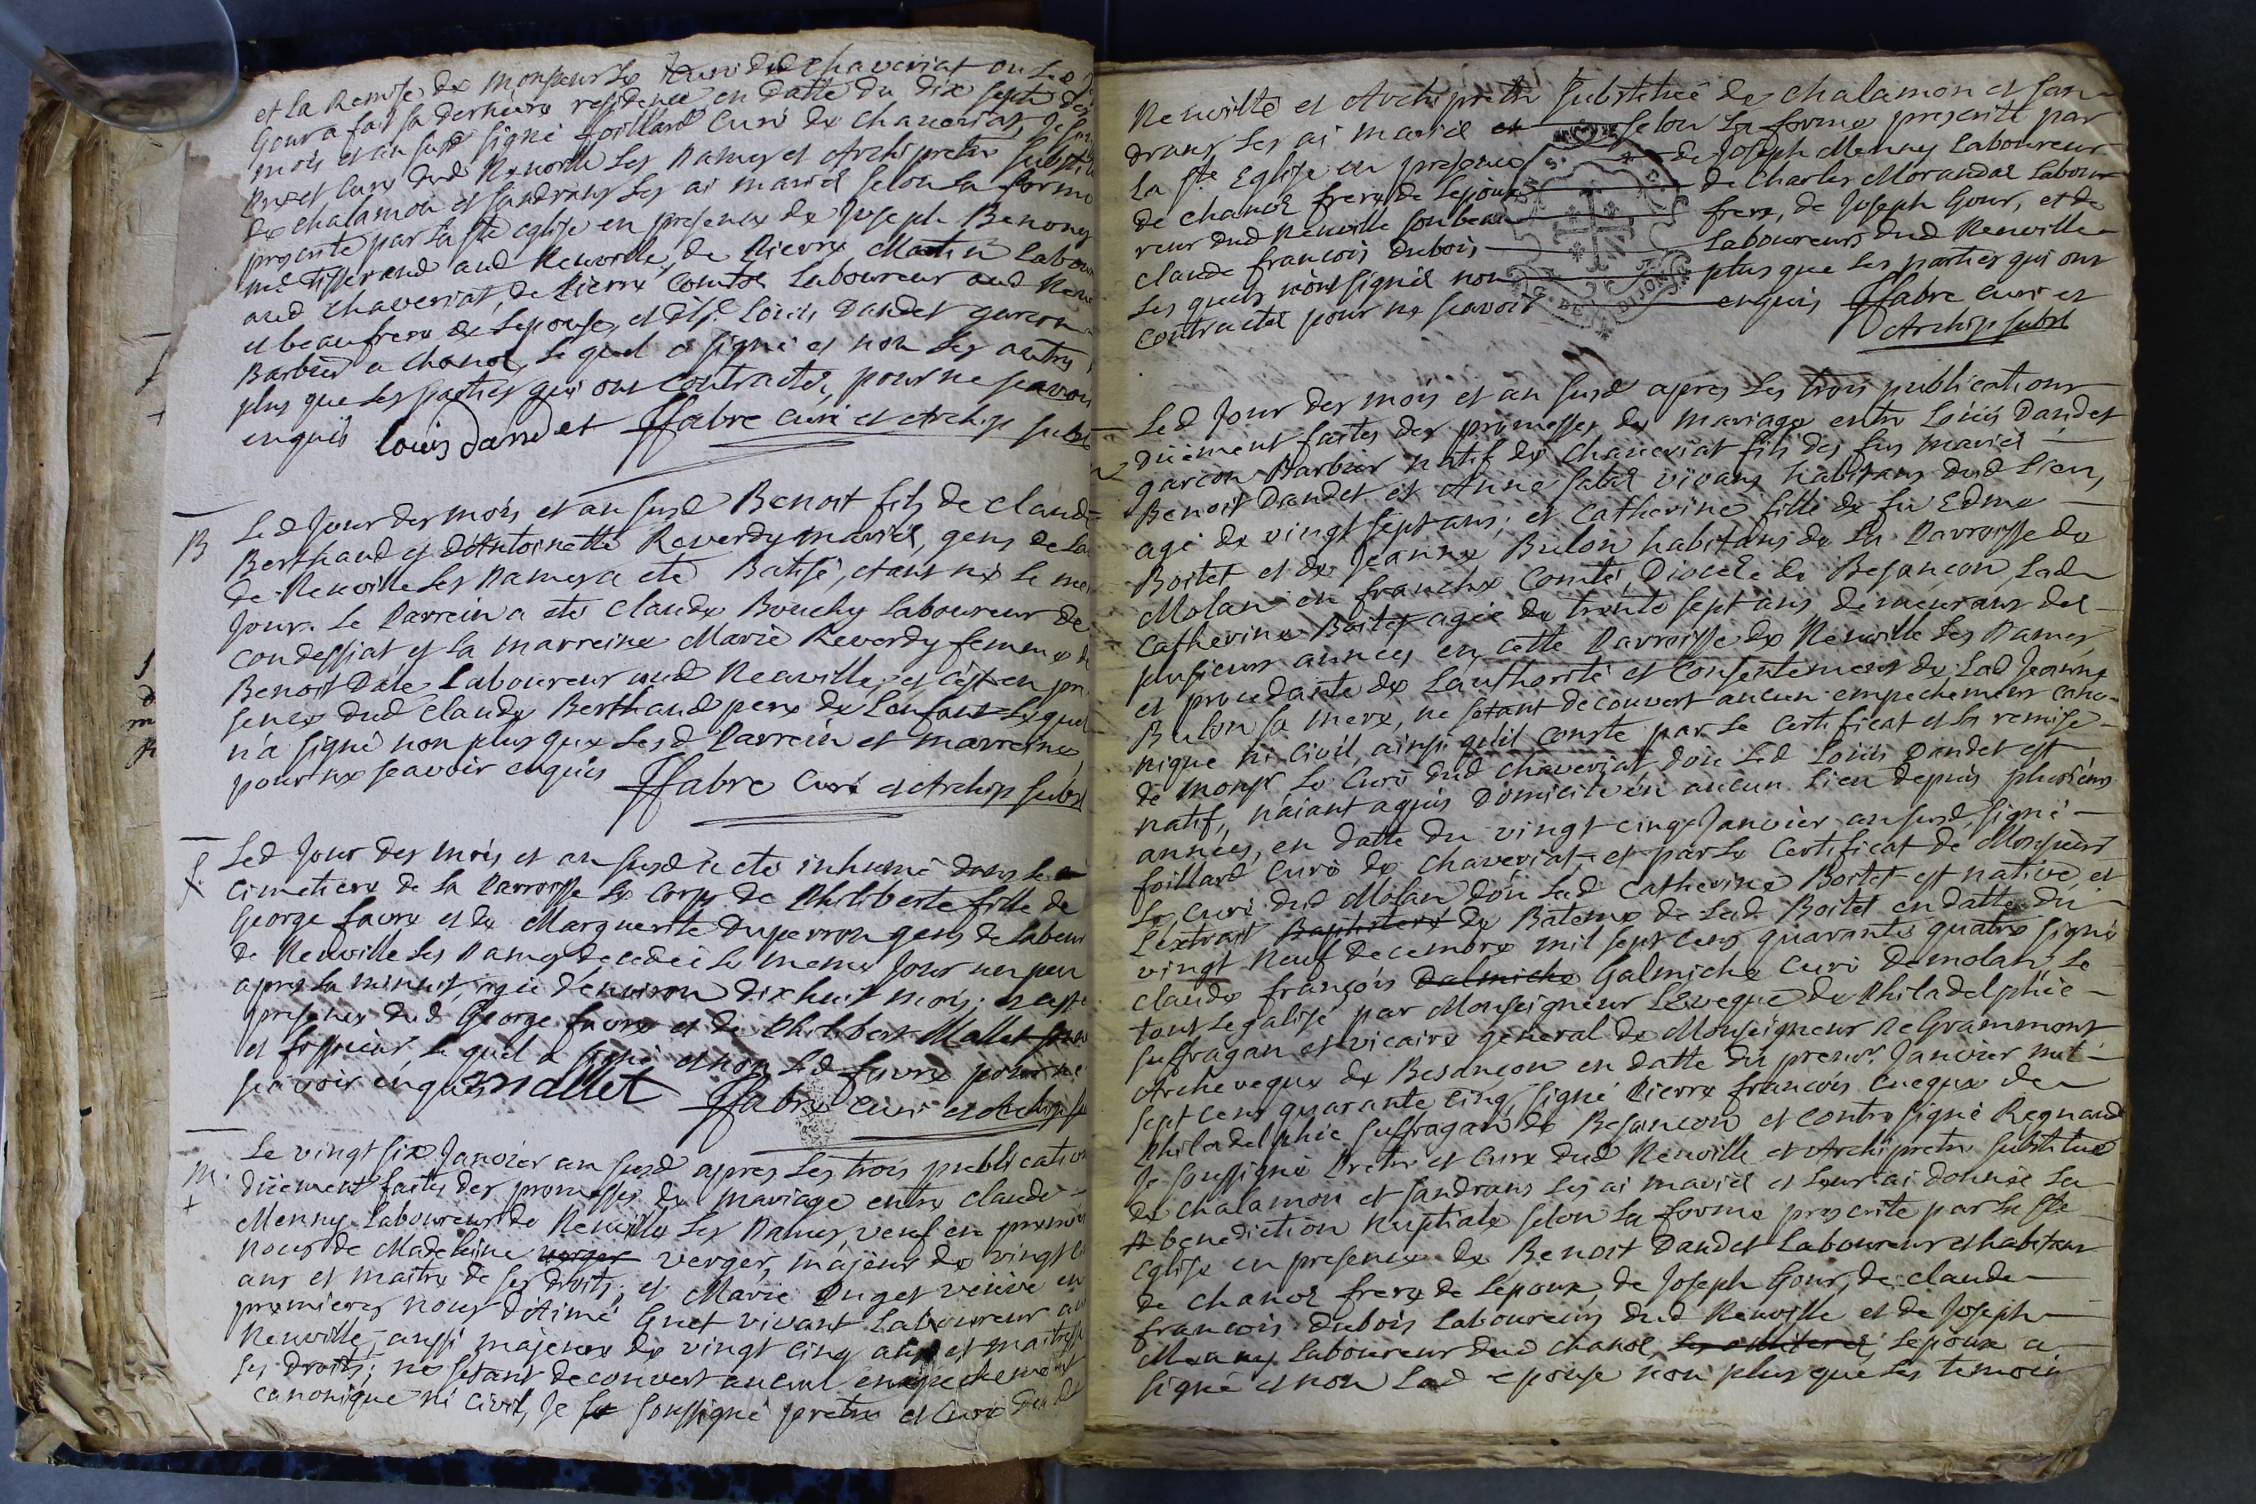 et la Remise de Monsieur Le Curé dud Chaveriat ou Led
Gour a fait sa derniere residence en datte du dix sept des
mois et an susd signé foillard Curé de Chaveriat, Je
Pretre et Curé dud Neuville Les Dames et Archipretre substitué
de Chalamon et Sandrans Les ai mariés selon la forme
prescrite par la ste eglise en presence de Joseph Benony
me tisserand aud Neuville, de Pierre Matin Labour
aud Chaveriat, de Pierre Comtet Laboureur aud Neuv
et beaufrere de Lepouse, et de Sr Loüis Dandet garçon
Barbier a Chanoz, Lequel a signé et non Les autres
plus que Les parties qui ont contracté, pour ne scavoir
enquis Louis dandet ffabre curé et Archip subst
B
Led Jour des mois et an susd Benoit fils de Claude
Berthaud et d'Antoinette Reverdy mariés, gens de La
de Neuville Les Dames a eté Batisé, etant né le me
Jour. Le Parrein a eté Claude Bouchy Laboureur de
Condessiat et la marreine Marie Reverdy femme de
Benoit Daté Laboureur aud Neuville, et c'est en pre
sence dud Claude Berthaud pere de L'enfant Lequel
n'a signé non plus que Lesd Parrein et marreine
pour ne scavoir enquis ffabre Curé et Archip subst
S
Led Jour des mois et an susd a eté inhumé dans le
cimetiere de la Parroisse Le Corps de Philiberte fille de
George favre et de Marguerite Duperron gens de Labeur
de Neuville Les Dames decedée Le meme Jour un peu
apres la minuit, agée d'environ dix huit mois; et c'est
presence dud George favre et de Philibert Mallet
et fossieur, Lequel a signé et non Led favre pour ne
scavoir enquis mallet ffabre curé et Archip
M
Le vingt six Janvier an susd apres Les trois publication
düement faites des promesses de mariage entre Claude
Menny Laboureur de Neuville Les Dames, veuf en premier
noces de Madeleine verger verger, majeur de vingt
ans et maitre de ses droits; et Marie Puget veuve en
premieres noces d'Aimé Guet vivant Laboureur au
Neuville, aussi majeure de vingt cinq ans et maitresse
ses droits; ne s'etant decouvert aucun empechement
canonique ni civil, Je so soussigné pretre et Curé
Neuville et Archipretre substitué de Chalamon et San
drans Les ai mariés et selon La forme prescrite par
La ste Eglise en presence de Joseph Menny Laboureur
de Chanoz frere de Lepoux de Charles Morandat Labou
reur dud Neuville son beau frere, de Joseph Gour, et de
Claude francois Dubois Laboureurs dud Neuville
Les quels n'ont signés non plus que Les parties qui ont
contractés pour ne scavoir enquis ffabre Curé et
Archip subst
Led Jour des mois et an susd apres Les trois publications
düement faites des promesses de mariage entre Loüis Dandet
garcon Barbier natif de Chaveriat fils des fus mariés
Benoit Dandet et Anne Sabat vivans habitans dud Lieu,
agé de vingt sept ans; et Catherine fille de fu Edme
Boitet et de Jeanne Bulon habitans de La Parroisse de
Molan en franche Comté, Diocese de Besançon, Lad
Catherine Boitet agée de trente sept ans demeurans des
plusieurs années en cette Parroisse de Neuville Les Dames,
et procedante de Lauthorité et consentement de Lad Jeanne
Bulon sa mere, ne s'etant decouvert aucun empechement cano-
nique ni civil, ainsi qu'il conste par Le certificat et la remise
de Monsr Le Curé dud Chaveriat dou Led Loüis Dandet est
natif, n'aiant aquis domicile en aucun lieu depuis plusieurs
années, en datte du vingt cinq Janvier an susd signé
foillard Curé de Chaveriat et par Le Certificat de Monsieur
Le Curé dud Molan d'ou Lad Catherine Boitet est native, et
L'extrait Baptistere de Bateme de Lad Boitet en datte du
vingt neuf decembre mil sept cens quarante quatre signé
claude françois Dalmiche Galmiche Curé de molan, Le
tout Legalisé par Monseigneur L'Eveque de Philadelphie
suffragan et vicaire general de Monseigneur de Grammont
Archeveque de Besançon en datte du premr Janvier mil
sept cens quarante cinq signé Pierre françois eveque de
Philadelphie suffragan de Besançon et contresigné Regnaud
Je soussigné Pretre et Curé dud Neuville et Archipretre substitué
de Chalamon et Sandrans Les ai mariés et Leur ai donnée La
benediction nuptiale selon La forme prescrite par La ste
Eglise en presence de Benoit Dandet Laboureur et habitans
de Chanoz frere de Lepoux, de Joseph Gour, de claude
francois Dubois Laboureurs dud Neuville et de Joseph
Menny Laboureur dud Chanoz, Lepoux a
signé et non Lad epouse non plus que Les temoin
G. DE DIJON